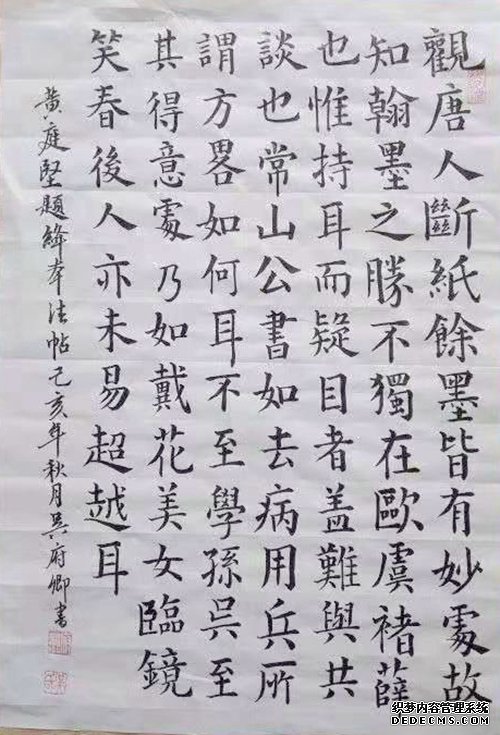 觀唐人斷紙餘墨皆有妙處故
知翰墨之勝不獨在歐虞褚薛
也惟持耳而疑目者蓋難與共
談也常山公書如去病用兵所
謂方畧如何耳不至學孫吳至
其得意處乃如戴花美女臨鏡
笑春後人亦未易超越耳
黄庭堅題絳本法帖己亥年秋月吳府卿書
织梦内容管理系统
DEDECMS.COM